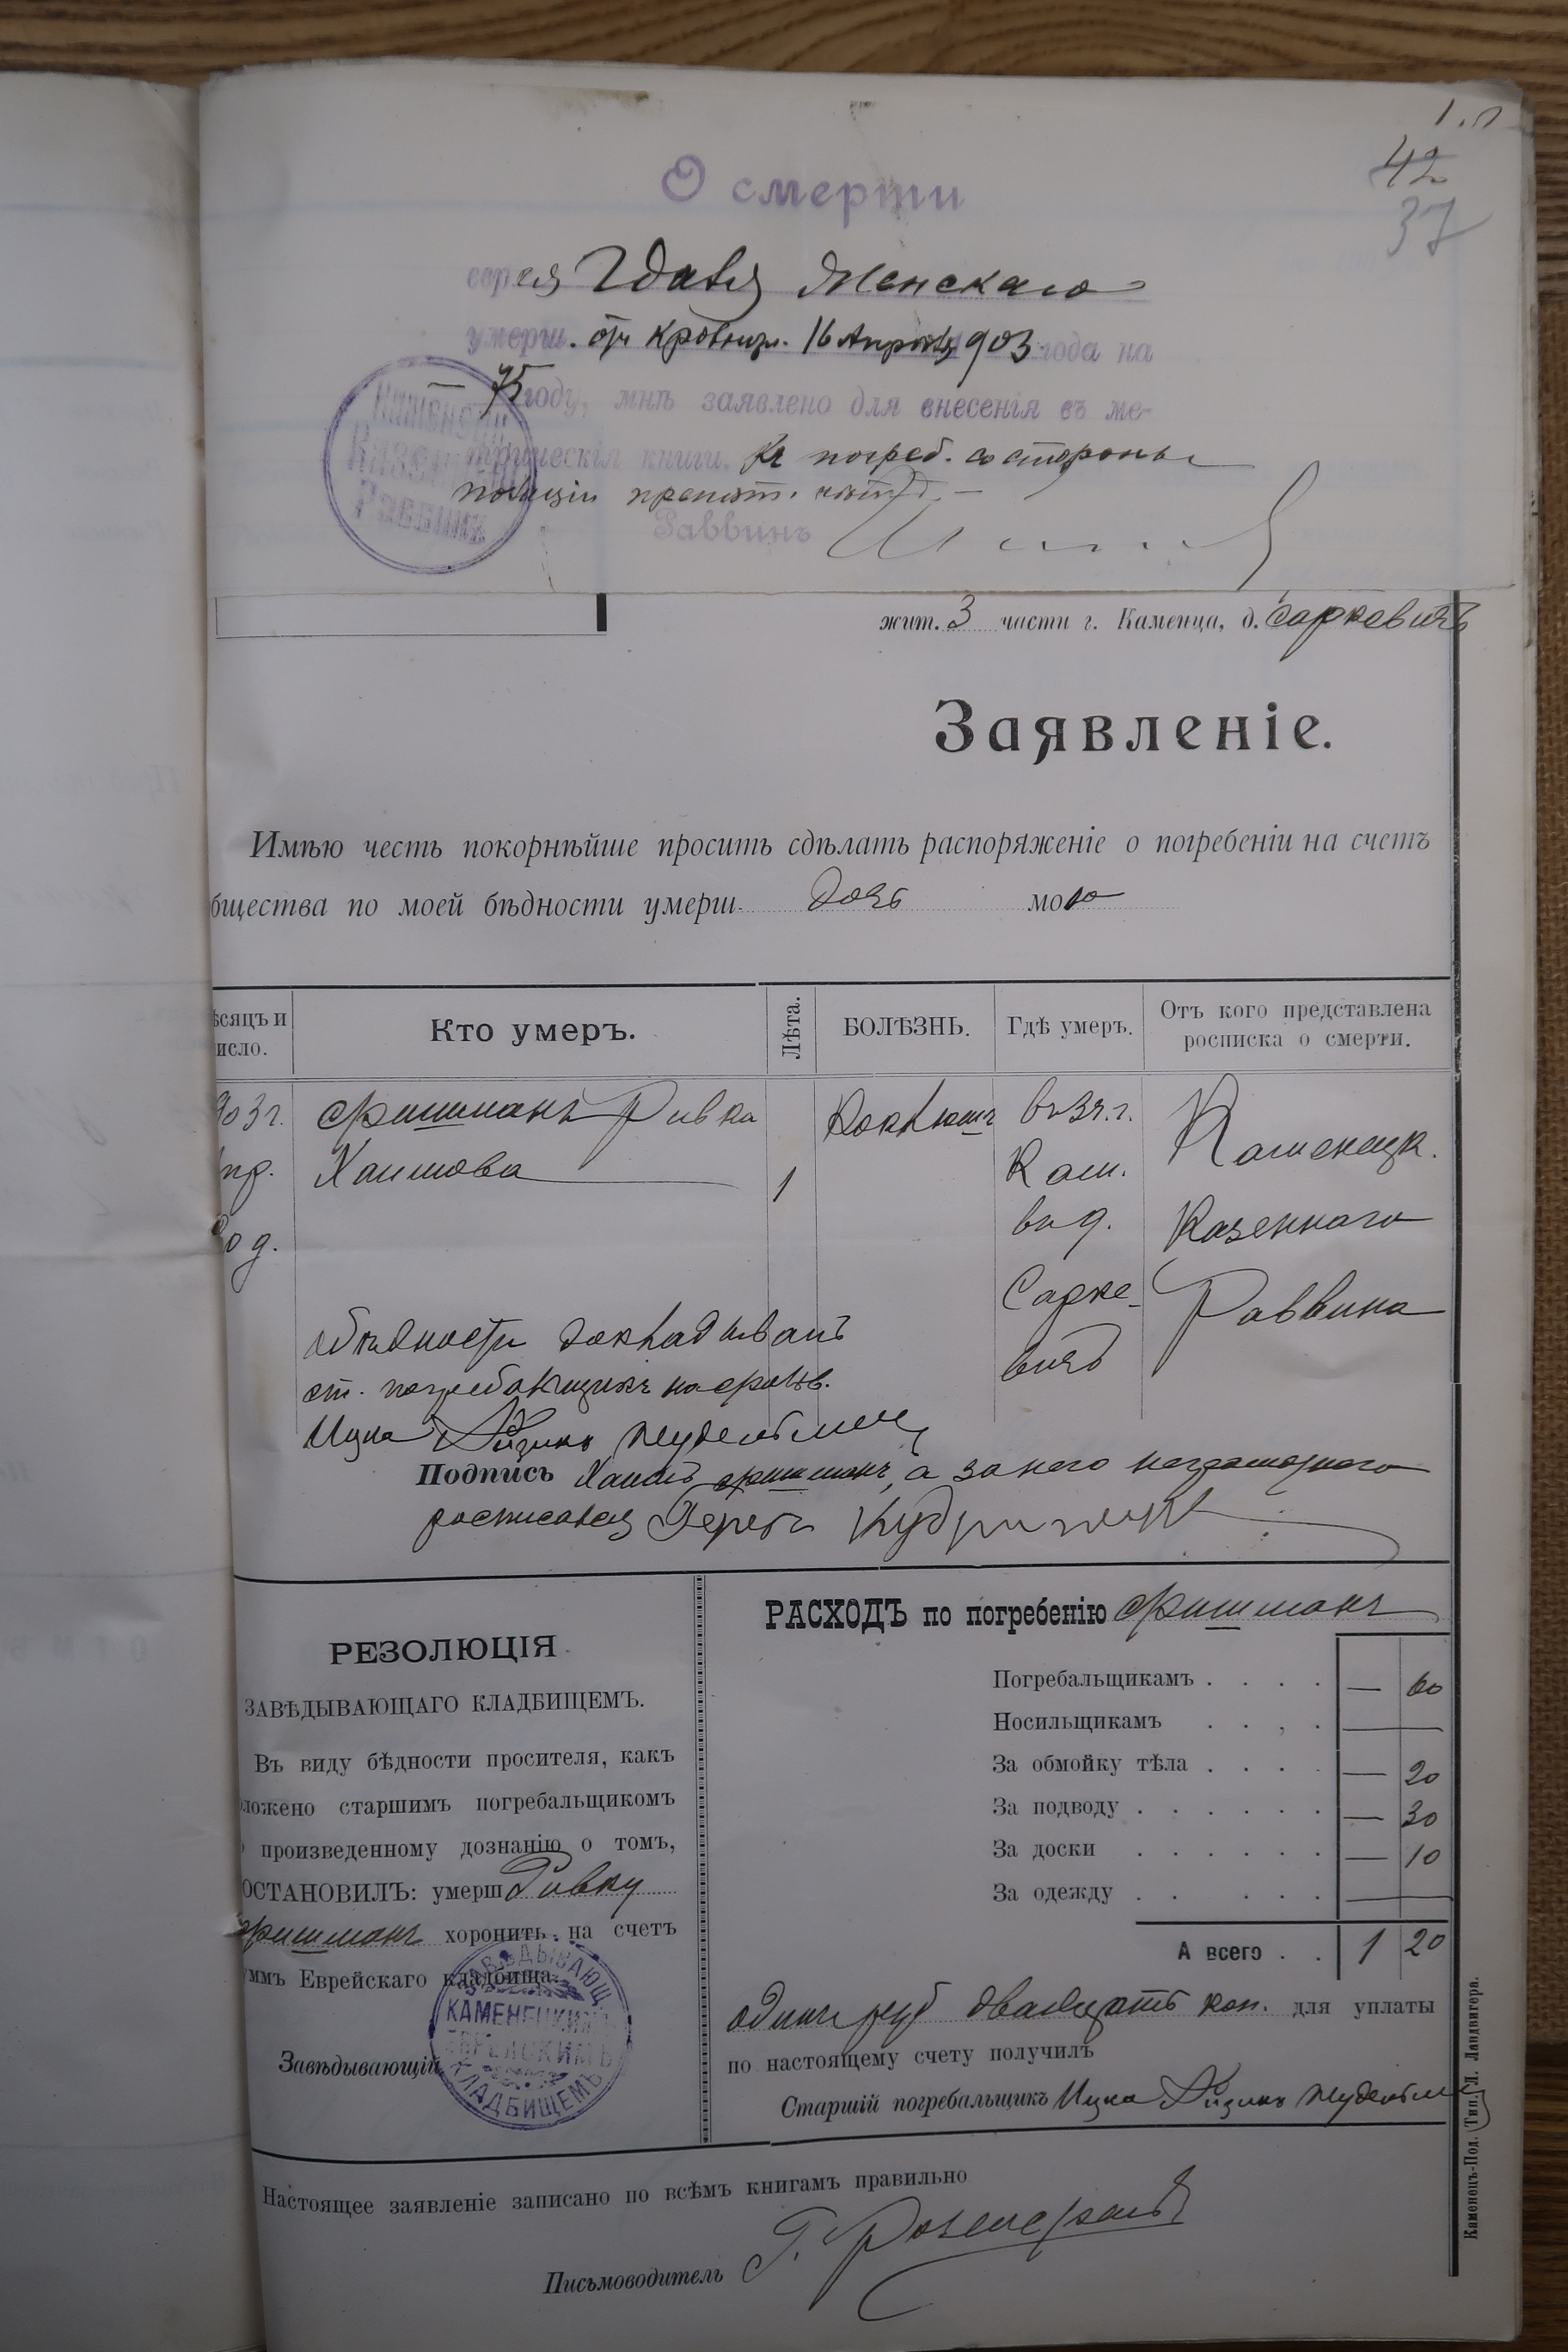 42
37
О смерти
умерш. 16 Апрѣля 903 года на
75 году, мнѣ заявлено для внесенія въ ме-
трическія книги. Къ погреб. со стороны
полиціи препят.
Раввинъ
жит. 3 части г. Каменца, д. Саркевичъ
Заявленіе.
Имѣю честь покорнѣйше просить сдѣлать распоряженіе о погребеніи на счетъ
бщества по моей бѣдности умерш. дочь мою
ѣсяцъ и исло. Кто умеръ. Лѣта. БОЛѢЗНЬ. Гдѣ умеръ. Отъ кого представлена росписка о смерти.
903 г. Фишманъ Ривка Коклюшъ въ 3 ч. г. Каменецк.
пр. Хаимова 1 Кам. Казеннаго
въ д. Раввина
Сарке-
вичъ
о бѣдности докладывалъ
ст. погребальщикъ
Ицко Айзикъ
Подпись Хаимъ Фишманъ, а за него неграмотнаго
росписался Герсъ
РЕЗОЛЮЦІЯ
ЗАВѢДЫВАЮЩАГО КЛАДБИЩЕМЪ.
Въ виду бѣдности просителя, какъ
ложено старшимъ погребальщикомъ
произведенному дознанію о томъ,
ОСТАНОВИЛЪ: умерш Ривку
Фишманъ хоронить на счетъ
уммъ Еврейскаго кладбища.
Завѣдывающій
ЗАВѢДЫВАЮЩ. КАМЕНЕЦКИМЪ ЕВРЕЙСКИМЪ КЛАДБИЩЕМЪ
РАСХОДЪ по погребенію Фишманъ
Погребальщикамъ . . . . — 60
Носильщикамъ . . . . —
За обмойку тѣла . . . . — 20
За подводу . . . . . . — 30
За доски . . . . . . — 10
За одежду . . . . . . —
А всего . . 1 20
одинъ руб двадцать коп. для уплаты
по настоящему счету получилъ
Старшій погребальщикъ Ицко Айзикъ
Настоящее заявленіе записано по всѣмъ книгамъ правильно
Письмоводитель
Каменецъ-Под. Тип. Л. Ландвигера.